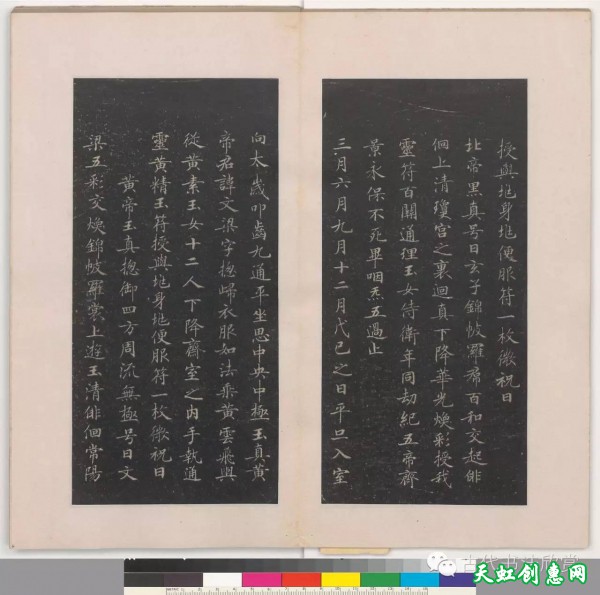 授與地身地便服符一枚微祝曰
北帝黑真号曰玄子錦帔羅帬百和交起俳
佪上清瓊宫之裏迴真下降華光煥彩授我
靈符百關通理玉女侍衛年同劫紀五帝齊
景永保不死畢咽炁五過止
三月六月九月十二月戊己之日平旦入室
向太歲叩齒九通平坐思中央中極玉真黃
帝君諱文梁字揔歸衣服如法乘黃雲飛輿
從黃素玉女十二人下降齋室之内手執通
靈黃精玉符授與地身地便服符一枚微祝曰
黃帝玉真揔御四方周流無極号曰文
梁五彩交煥錦帔羅裳上遊玉清俳佪常陽
古代书法欣赏
天虹创惠网